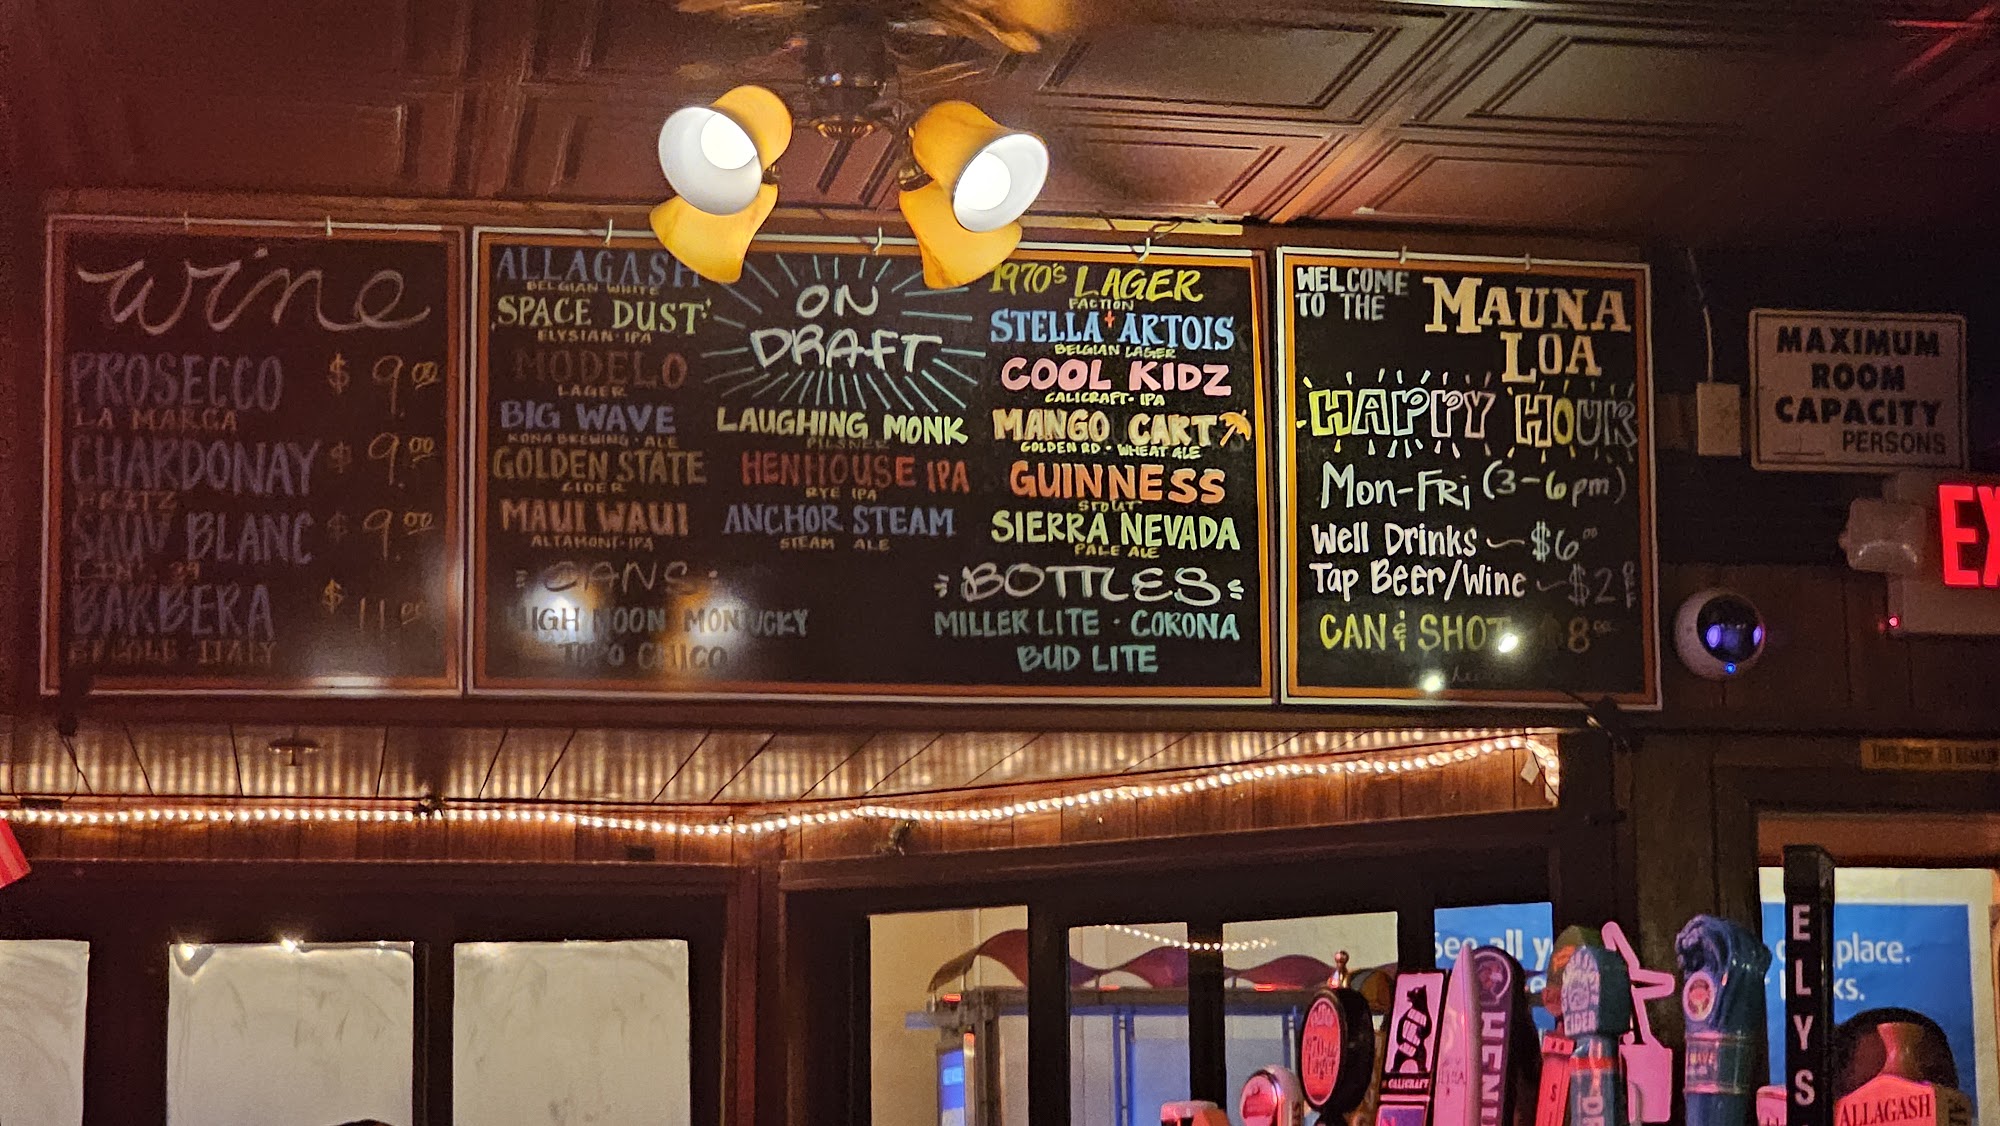 wine
PROSECCO $9.00
LA MARCA
CHARDONAY $9.00
FRITZ
SAUV BLANC $9.00
BARBERA $11.00
ITALY
ALLAGASH
BELGIAN WHITE
SPACE DUST
ELYSIAN · IPA
MODELO
LAGER
BIG WAVE
KONA BREWING · ALE
GOLDEN STATE
CIDER
MAUI WAUI
ALTAMONT · IPA
ON
DRAFT
LAUGHING MONK
PILSNER
HENHOUSE IPA
RYE IPA
ANCHOR STEAM
STEAM ALE
1970's LAGER
FACTION
STELLA ARTOIS
BELGIAN LAGER
COOL KIDZ
CALICRAFT · IPA
MANGO CART
GOLDEN RD · WHEAT ALE
GUINNESS
STOUT
SIERRA NEVADA
PALE ALE
CANS
HIGH NOON MONTUCKY
TOPO CHICO
BOTTLES
MILLER LITE · CORONA
BUD LITE
WELCOME
TO THE
MAUNA
LOA
HAPPY HOUR
Mon-Fri (3-6pm)
Well Drinks ~ $6.00
Tap Beer/Wine ~ $2 OFF
CAN & SHOT 8
MAXIMUM
ROOM
CAPACITY
PERSONS
EX
THIS DOOR TO REMAIN
See all y
place.
ks.
CALICRAFT
HEN
CIDER
ELYS
ALLAGASH